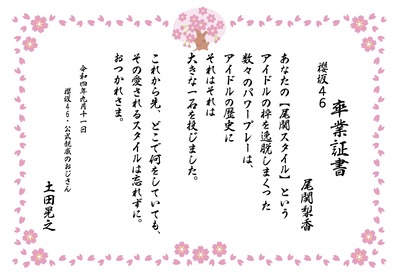 卒業証書
櫻坂46
尾関梨香
あなたの【尾関スタイル】という
アイドルの枠を逸脱しまくった
数々のパワープレーは、
アイドルの歴史に
それはそれは
大きな一石を投じました。
これから先、どこで何をしていても、
その愛されるスタイルは忘れずに。
おつかれさま。
令和四年九月十一日
櫻坂46・公式親戚のおじさん
土田晃之